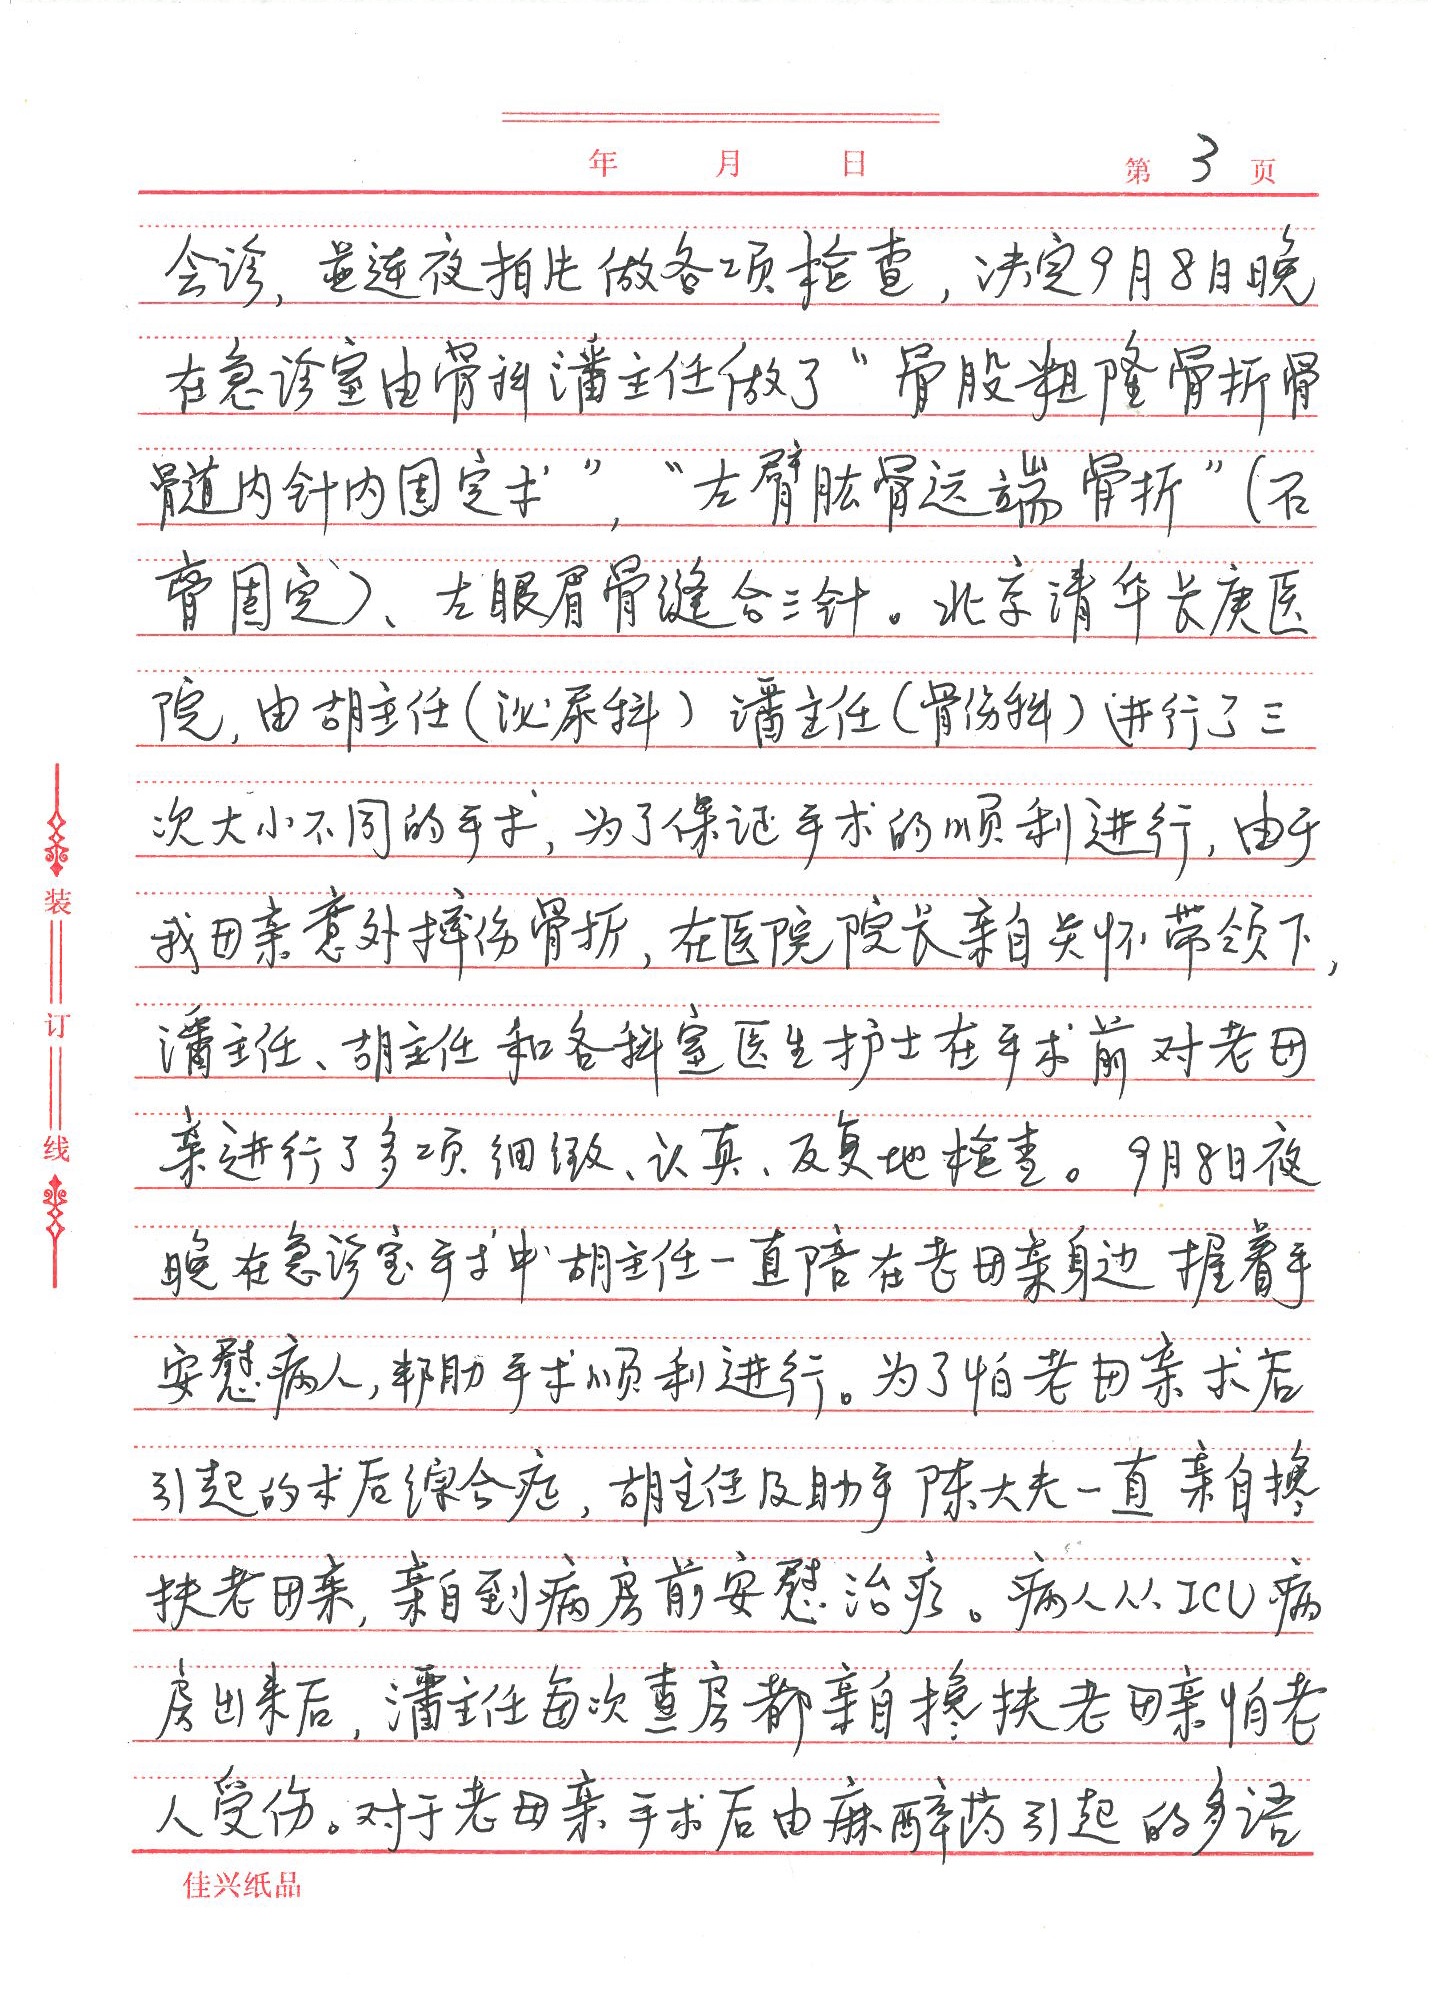 年 月 日 第 3 页
会诊，並连夜拍片做各项检查，决定9月8日晚
在急诊室由骨科潘主任做了“骨股粗隆骨折骨
髓道内针内固定术”，“左臂肱骨远端骨折”（石
膏固定）、左眼眉骨缝合三针。北京清华长庚医
院，由胡主任（泌尿科）潘主任（骨伤科）进行了三
次大小不同的手术，为了保证手术的顺利进行，由于
我母亲意外摔伤骨折，在医院院长亲自关怀带领下，
潘主任、胡主任和各科室医生护士在手术前对老母
亲进行了多项细致、认真、反复地检查。9月8日夜
晚在急诊室手术中胡主任一直陪在老母亲身边握着手
安慰病人，帮助手术顺利进行。为了怕老母亲术后
引起的术后综合症，胡主任及助手陈大夫一直亲自搀
扶老母亲，亲自到病房前安慰治疗。病人从ICU病
房出来后，潘主任每次查房都亲自搀扶老母亲怕老
人受伤。对于老母亲手术后由麻醉药引起的多语
装
订
线
佳兴纸品